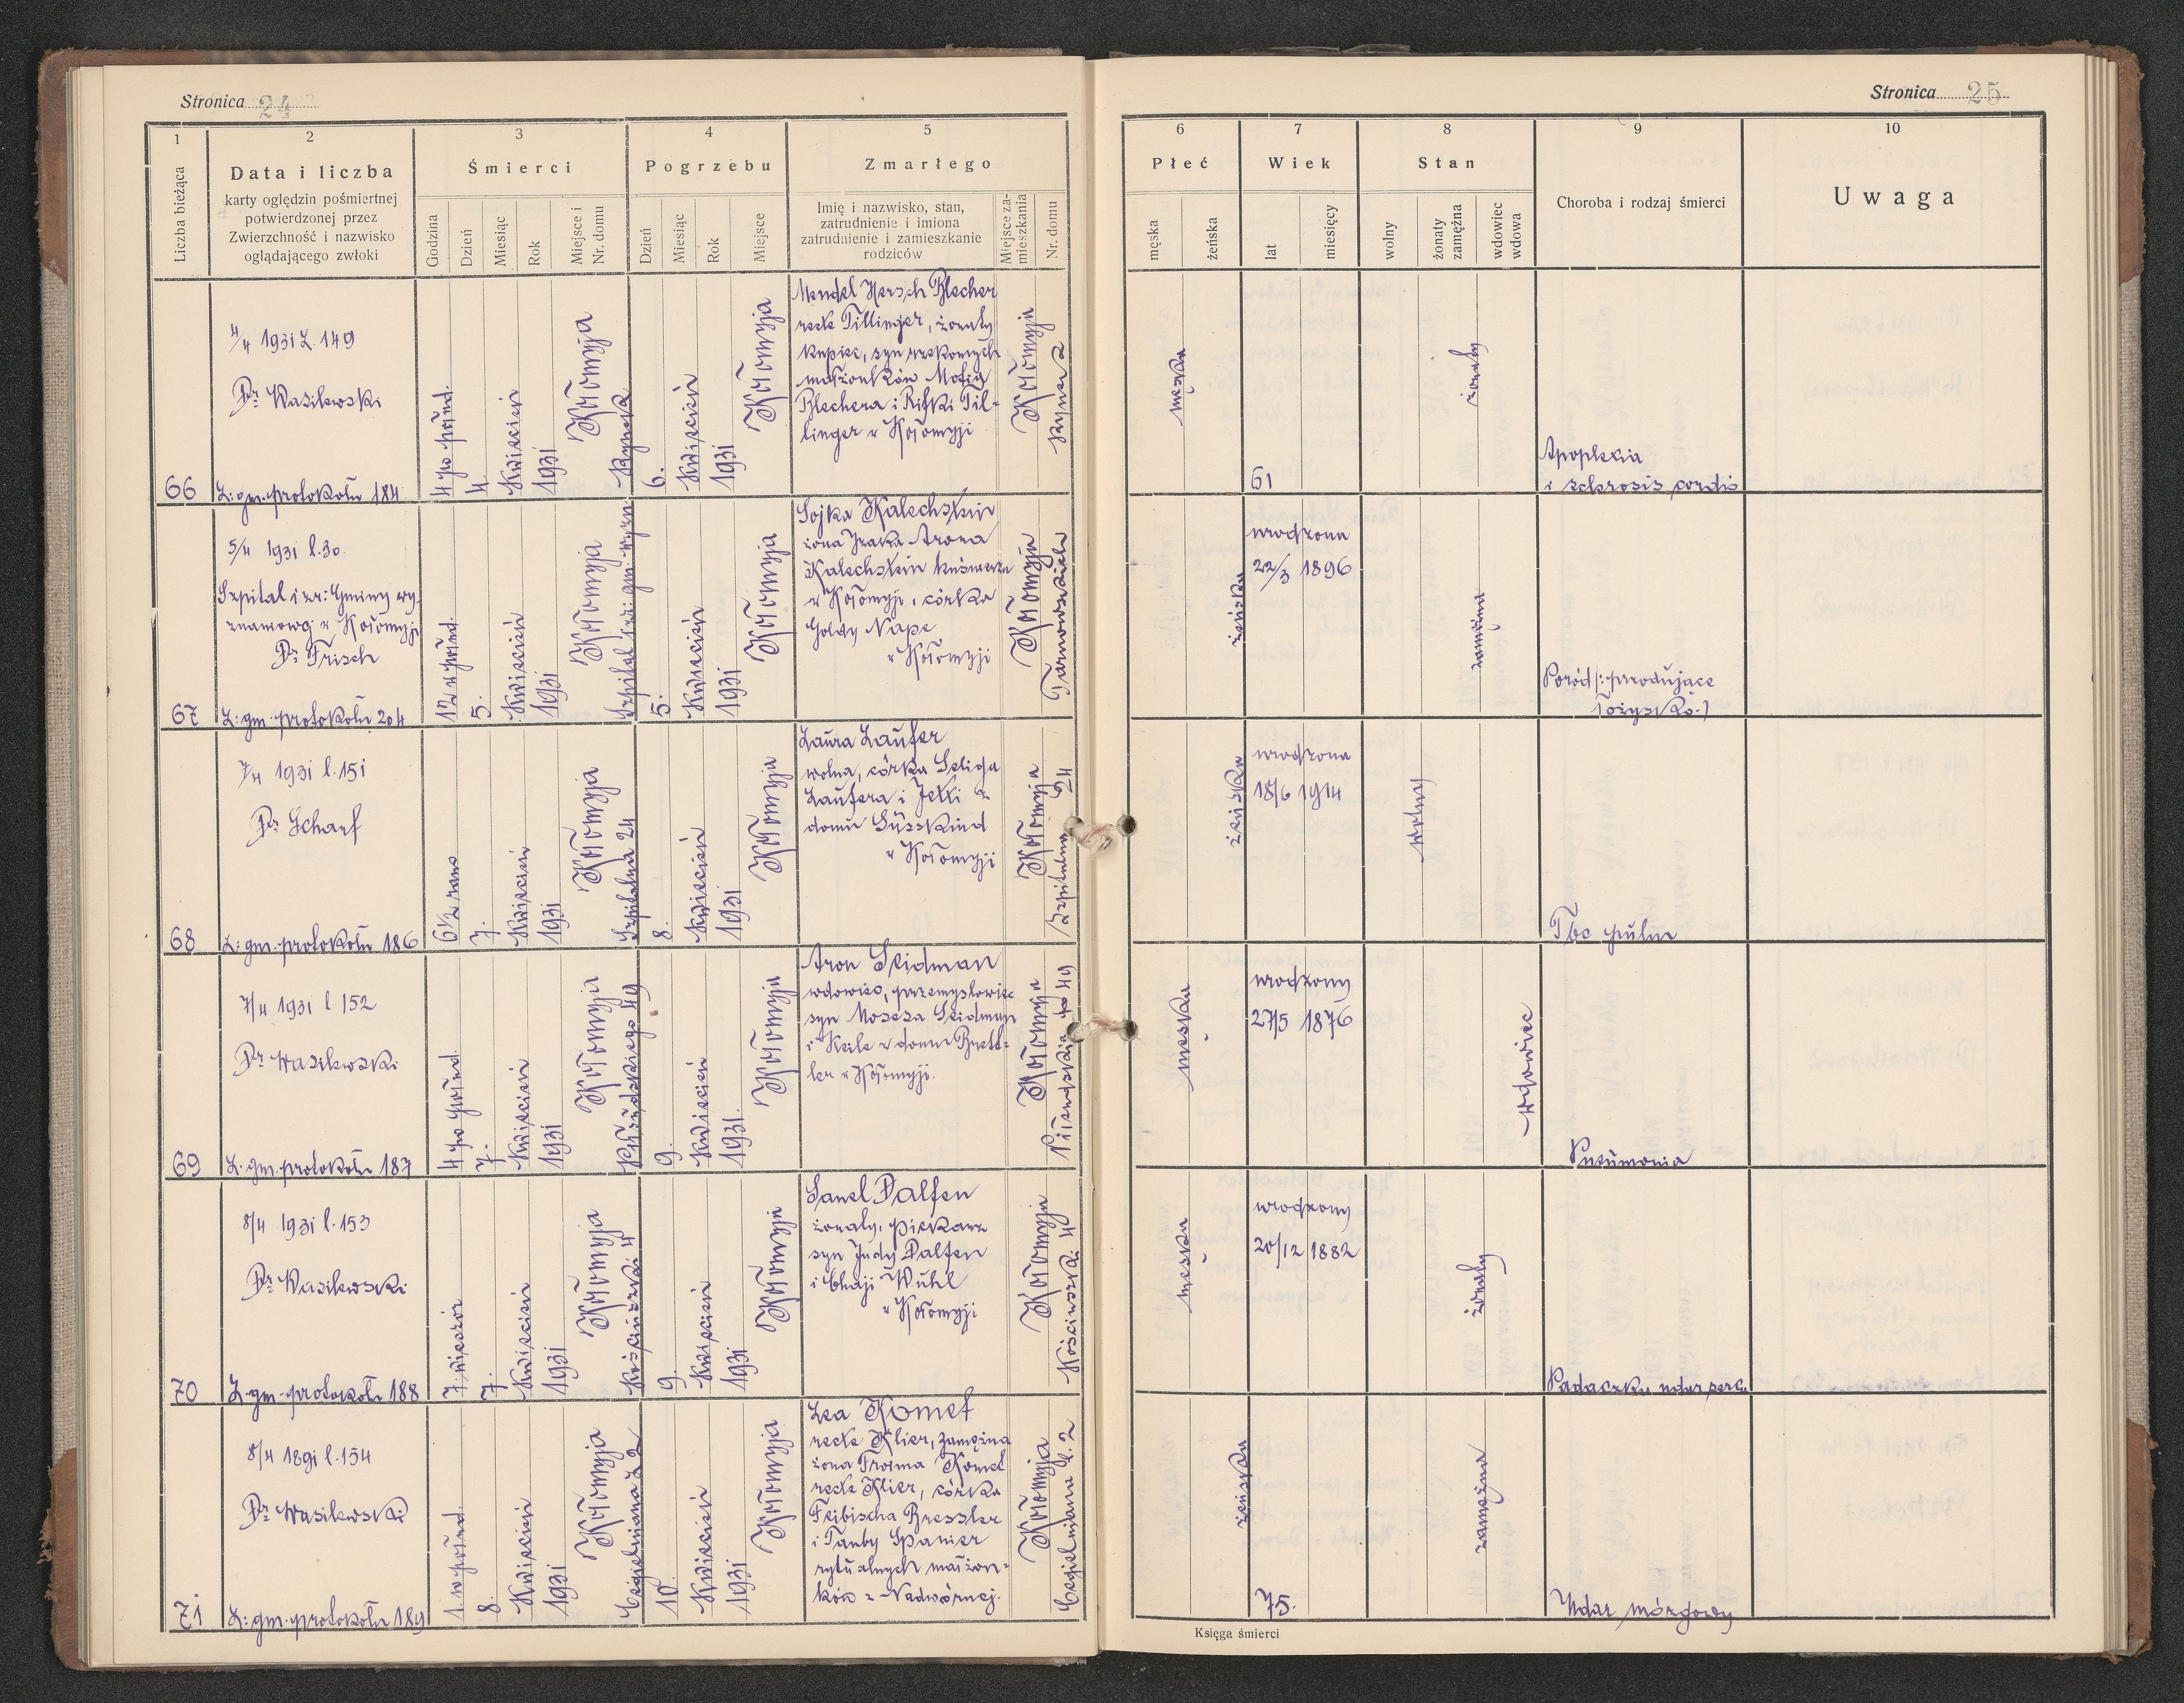 Stronica 24
1 2 3 4 5
Liczba bieżąca
Data i liczba
karty oględzin pośmiertnej
potwierdzonej przez
Zwierzchność i nazwisko
oglądającego zwłoki
Śmierci
Godzina
Dzień
Miesiąc
Rok
Miejsce i
Nr. domu
Pogrzebu
Dzień
Miesiąc
Rok
Miejsce
Zmarłego
Imię i nazwisko, stan,
zatrudnienie i imiona
zatrudnienie i zamieszkanie
rodziców
Miejsce za-
mieszkania
Nr. domu
66
4/4 1931 L. 149
Dr Wasilewski
L: gm. protokołu 184
4 po połud.
4.
Kwiecień
1931
Kołomyja
Rynek 2
6.
Kwiecień
1931
Kołomyja
Mendel Hersch Blecher
recte Tillinger, żonaty
kupiec, syn rzekomych
małżonków Motia
Blechera i Rifki Til-
linger w Kołomyji
Kołomyja
Rynek 2
67
5/4 1931 l. 30
Szpital izr: Gminy wy-
znaniowej w Kołomyji
Dr Frisch
L: gm. protokołu 204
12 w połud.
5.
Kwiecień
1931
Kołomyja
Szpital izr: gm. wyzn:
5.
Kwiecień
1931
Kołomyja
Sojka Kalechstein
żona Izaka Arona
Kalechstein kuśnierza
w Kołomyji, córka
Goldy Nape
w Kołomyji
Kołomyja
68
7/4 1931 l. 151
Dr Scharf
L: gm. protokołu 186
6 1/2 rano
7.
Kwiecień
1931
Kołomyja
Szpitalna 24
8.
Kwiecień
1931
Kołomyja
Laura Laufer
wolna, córka Seliga
Laufera i Jetti z
domu Süsskind
w Kołomyji
Kołomyja
Szpitalna 24
69
7/4 1931 l 152
Dr Wasilewski
L. gm. protokołu 187
4 po połud.
7.
Kwiecień
1931
Kołomyja
Piłsudskiego 49
9.
Kwiecień
1931.
Kołomyja
Aron Seidman
wdowiec, przemysłowiec
syn Mosesa Seidman
i Keile z domu Brett-
ler w Kołomyji.
Kołomyja
Piłsudskiego 49
70
8/4 1931 l. 153
Dr Wasilewski
L. gm. protokołu 188
7. wieczór
7.
Kwiecień
1931
Kołomyja
Kościuszki 4
9.
Kwiecień
1931
Kołomyja
Sanel Dalfen
żonaty, piekarz
syn Judy Dalfen
i Chaji Wuhl
w Kołomyji
Kołomyja
Kościuszki 4
71
8/4 1891 l. 154
Dr Wasilewski
L: gm. protokołu 189
1. w połud.
8.
Kwiecień
1931
Kołomyja
Cegielniana L 2
10.
Kwiecień
1931
Kołomyja
Lea Komet
recte Klier, zamężna
żona Froima Komet
recte Klier, córka
Feibischa Bressler
i Tauby Spanier
rytualnych małżon-
ków z Nadwórnej.
Kołomyja
Cegielniana l. 2
Stronica 25
6 7 8 9 10
Płeć
męska
żeńska
Wiek
lat
miesięcy
Stan
wolny
żonaty
zamężna
wdowiec
wdowa
Choroba i rodzaj śmierci
Uwaga
męska
61
żonaty
Apoplexia
i sclerosis cordis
żeńska
urodzona
22/3 1896
zamężna
Poród
łożysko.)
żeńska
urodzona
18/6 1914
wolny
Tbc pulm
męska
urodzony
27/5 1876
wdowiec
Pneumonia
męska
urodzony
20/12 1882
żonaty
Padaczka udar serca
żeńska
75.
zamężna
Udar mózgowy
Księga śmierci